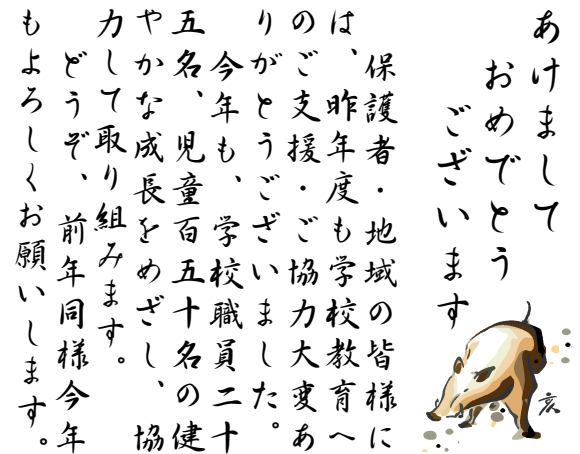 あけまして
おめでとう
ございます
保護者・地域の皆様に
は、昨年度も学校教育へ
のご支援・ご協力大変あ
りがとうございました。
今年も、学校職員二十
五名、児童百五十名の健
やかな成長をめざし、協
力して取り組みます。
どうぞ、前年同様今年
もよろしくお願いします。
亥